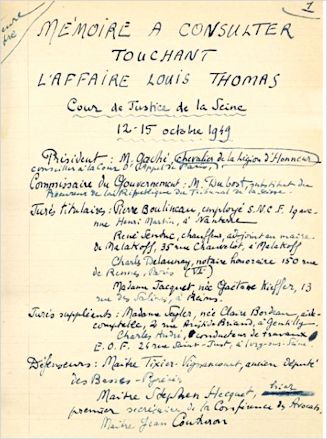 1
MÉMOIRE A CONSULTER
TOUCHANT
L'AFFAIRE LOUIS THOMAS
Cour de Justice de la Seine
12-15 octobre 1949
Président : M. Gaché, Chevalier de la Légion d'Honneur
conseiller à la Cour d'Appel de Paris,
Commissaire du Gouvernement : M. Dubost, substitut du
Procureur de la République du Tribunal de la Seine.
Jurés titulaires : Pierre Boulineau, employé S.N.C.F. 19 ave-
nue Henri Martin, à Nanterre
René chauffeur, adjoint au maire
de Malakoff, 35 rue Chauvelot, à Malakoff
Charles Delaunay, notaire honoraire 150 rue
de Rennes, Paris (VI)
Madame Jacquet, née Gaëtane Kieffer, 13
rue des Salines, à Reims.
Jurés suppléants : Madame Sayler, née Claire Bordeau, aide-
comptable, 2 rue Aristide Briand, à Gentilly.
Charles André, conducteur de travaux
E.D.F. 21 rue Saint-Just, à Ivry-sur-Seine.
Défenseurs : Maître Tixier-Vignancour, ancien député
des Basses-Pyrénées
Maître Stephen Hecquet,
premier secrétaire de la Conférence des Avocats,
Maître Jean Couturon